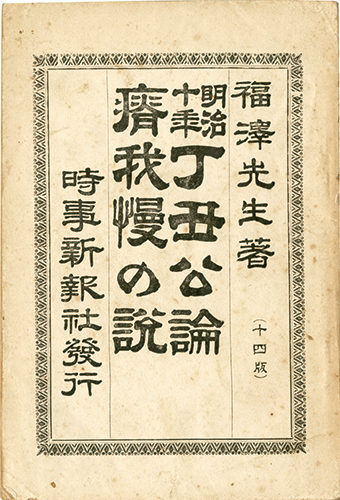 福澤先生著
(十四版)
明治十年丁丑公論
瘠我慢の説
時事新報社發行